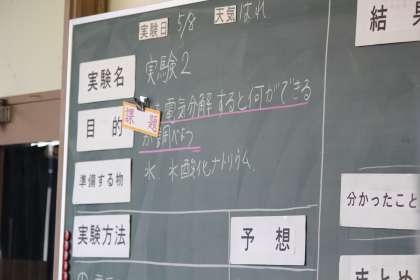 実験日 5/8 天気 はれ
実験名 実験2
目的 電気分解すると何ができる
課題
か調べよう
準備する物 水、水酸化ナトリウム
実験方法
予想
結果
分かったこと
まとめ